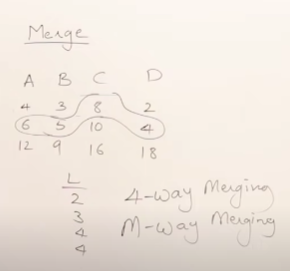 Merge
A B C D
4 3 8 2
6 5 10 4
12 9 16 18
L
2 4-way Merging
3 M-way Merging
4
4